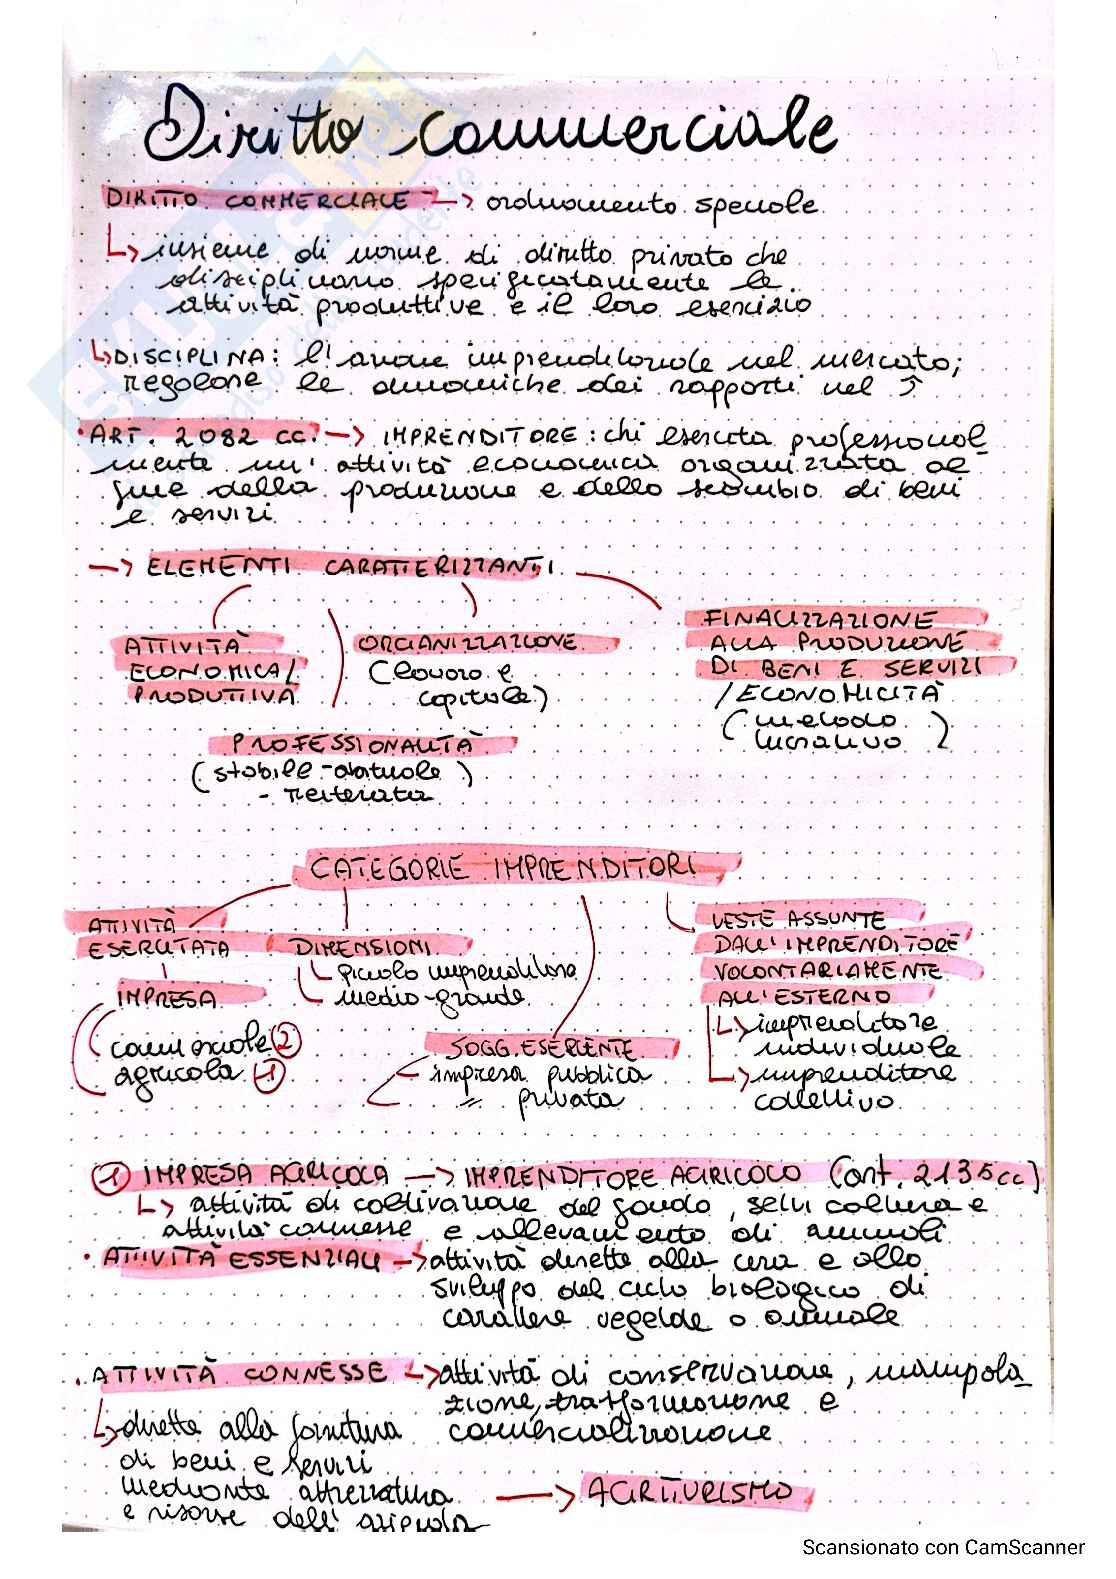 Diritto commerciale
DIRITTO COMMERCIALE → ordinamento speciale
↳ insieme di norme di diritto privato che
disciplinano specificatamente le
attività produttive e il loro esercizio
↳ DISCIPLINA: l'azione imprenditoriale nel mercato;
regolare le dinamiche dei rapporti nel ↑
• ART. 2082 cc. → IMPRENDITORE: chi esercita professional
mente un' attività economica organizzata al
fine della produzione e dello scambio di beni
e servizi
→ ELEMENTI CARATTERIZZANTI
ATTIVITÀ
ECONOMICA/
PRODUTTIVA
ORGANIZZAZIONE
(lavoro e
capitale)
FINALIZZAZIONE
ALLA PRODUZIONE
DI BENI E SERVIZI
/ECONOMICITÀ
(metodo
lucrativo)
PROFESSIONALITÀ
(stabile - abituale)
- reiterata
CATEGORIE IMPRENDITORI
ATTIVITÀ
ESERCITATA
IMPRESA
commerciale ②
agricola ①
DIMENSIONI
piccolo imprenditore
medio-grande
SOGG. ESERCENTE
impresa pubblica
" privata
VESTE ASSUNTE
DALL'IMPRENDITORE
VOLONTARIAMENTE
ALL'ESTERNO
↳ imprenditore
individuale
↳ imprenditore
collettivo
① IMPRESA AGRICOLA → IMPRENDITORE AGRICOLO (art. 2135 cc)
↳ attività di coltivazione del fondo, selvicoltura e
attività connesse e allevamento di animali
• ATTIVITÀ ESSENZIALI → attività dirette alla cura e allo
sviluppo del ciclo biologico di
carattere vegetale o animale
• ATTIVITÀ CONNESSE ↳ attività di conservazione, manipola
zione, trasformazione e
commercializzazione
↳ dirette alla fornitura
di beni e servizi
mediante attrezzatura
e risorse dell' azienda
→ AGRITURISMO
Scansionato con CamScanner